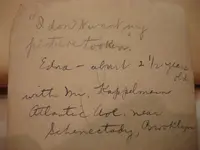 "I don't want my
picture tooken."
Edna - about 2 1/2 years
old
with Mr. Kappelman
Atlantic Ave. near
Schenectady, Brooklyn